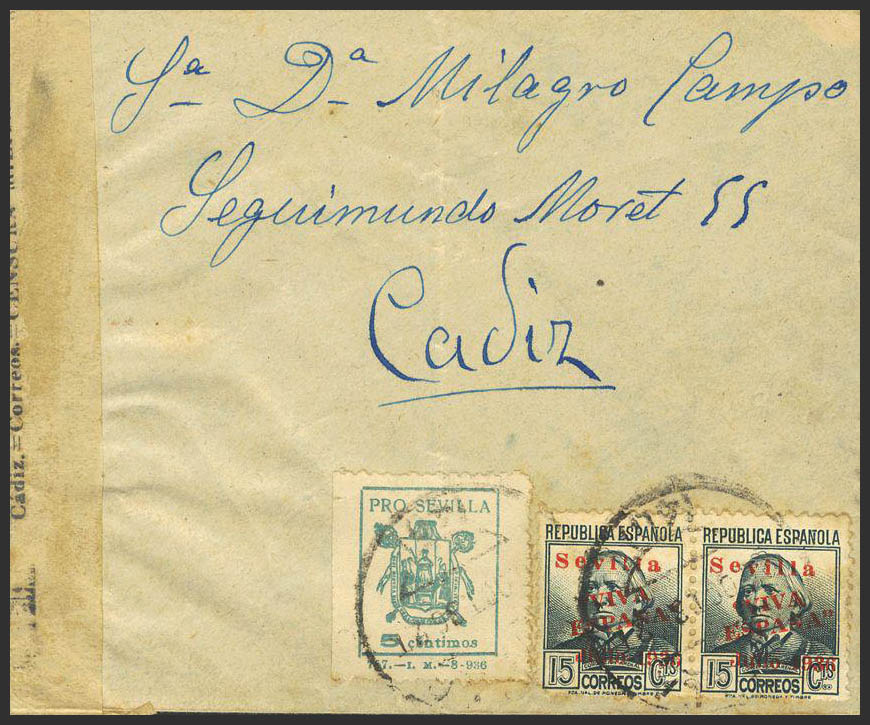 Sª Dª Milagro Campo
Seguimundo Moret 55
Cadiz
Cádiz.=Correos.=CENSURA
PRO SEVILLA
5 céntimos
7.—I. M.—8-936
REPUBLICA ESPAÑOLA
Sevilla
"VIVA
ESPAÑA"
Julio 1936
15 CORREOS Cts
REPUBLICA ESPAÑOLA
Sevilla
"VIVA
ESPAÑA"
Julio 1936
15 CORREOS Cts